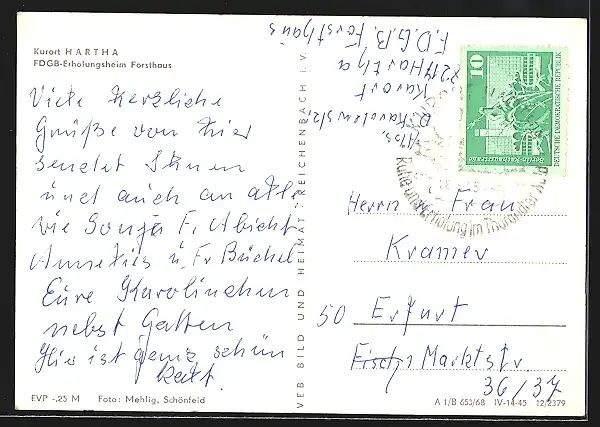 Kurort HARTHA
FDGB-Erholungsheim Forsthaus
Viele herzliche
Grüße von hier
sendet Ihnen
und auch an alle
wie Sonja F. Albicht
Annelies u. Fr Büchel
Eure Karolinchen
nebst Gatten
Hier ist ganz schön
kalt.
EVP -.25 M Foto: Mehlig, Schönfeld
VEB BILD UND HEIMAT REICHENBACH i. V.
Abs.
Kurort
8217 Hartha
F.D.G.B. Forsthaus
10
DEUTSCHE DEMOKRATISCHE REPUBLIK
Berlin-Rathausstraße
Ruhe und Erholung im Tharandter Wald
Herrn Frau
Kramer
50 Erfurt
Fischer Marktstr.
36/37
A 1/B 653/68 IV-14-45 12/2379